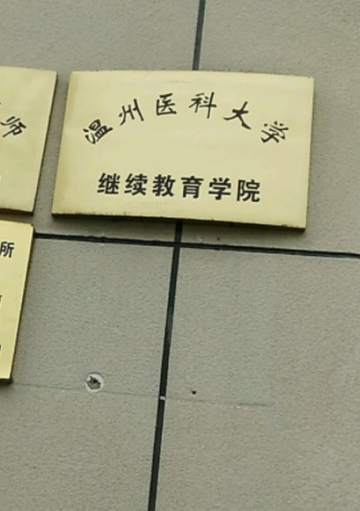 温州医科大学
继续教育学院
师
所